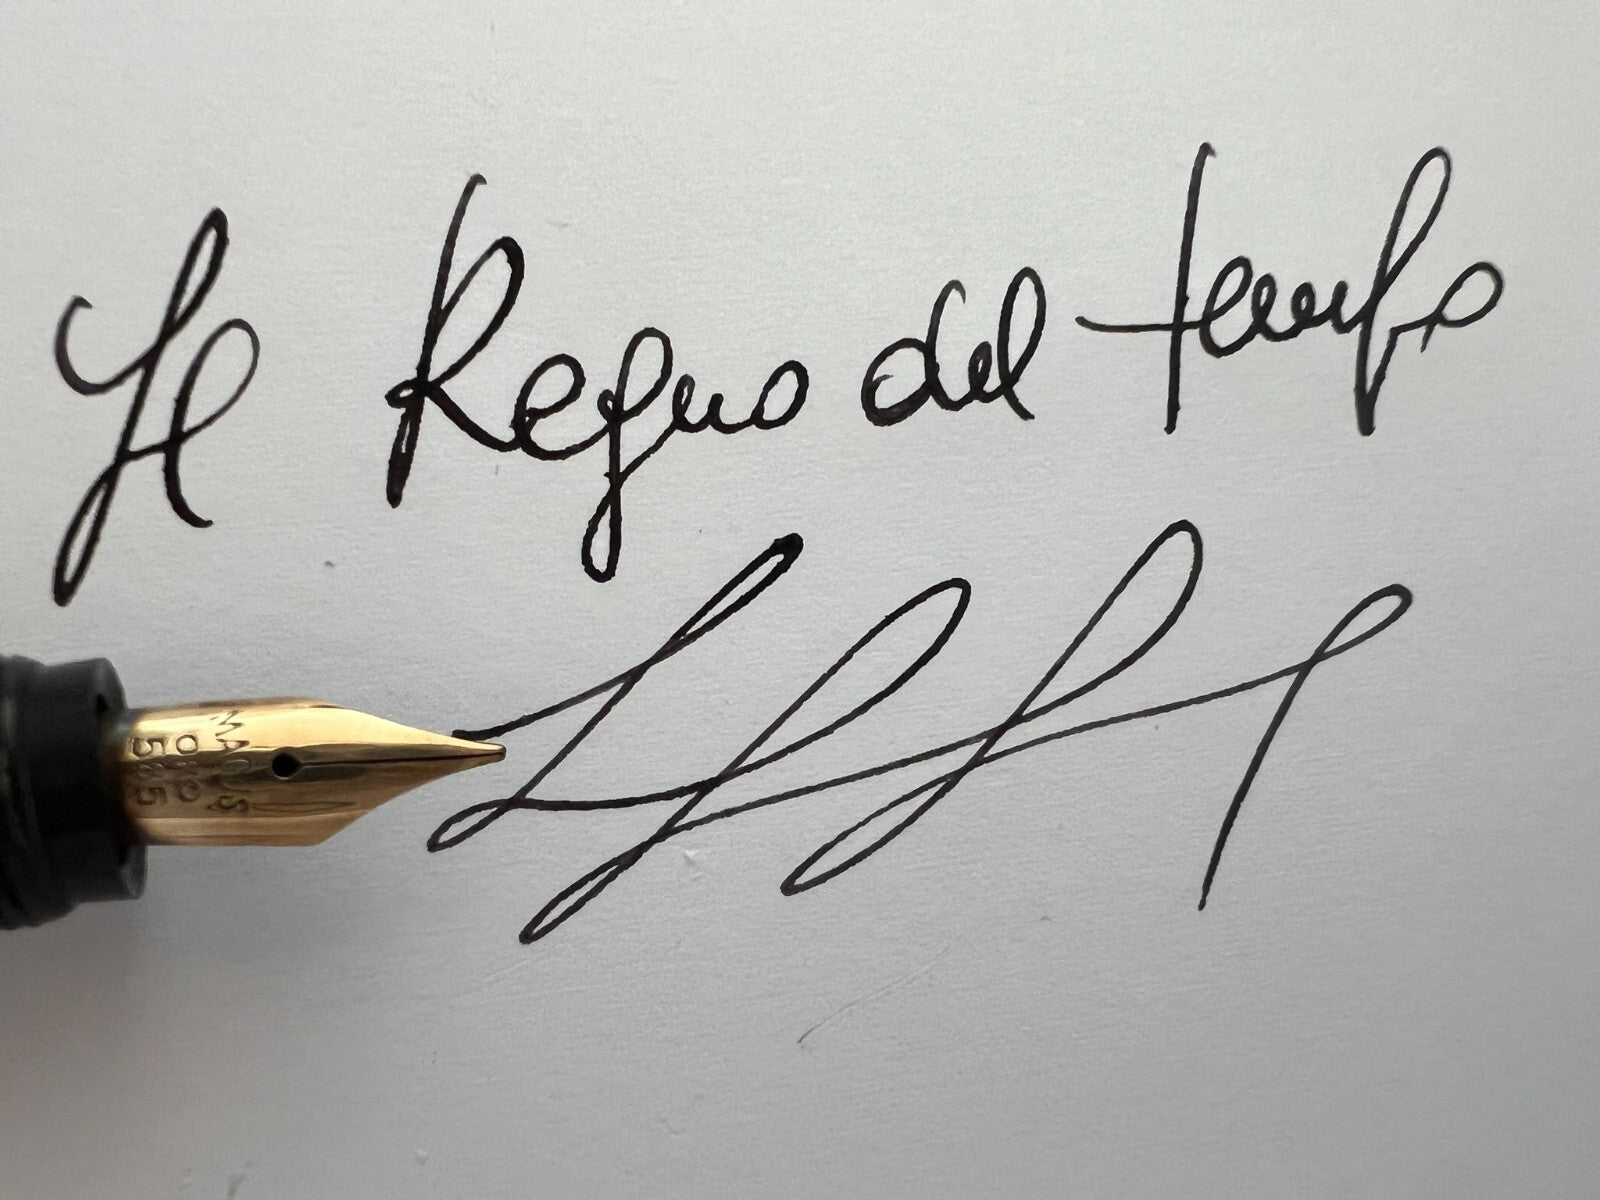 Il Regno del tempo
MAGUS
ORO
585